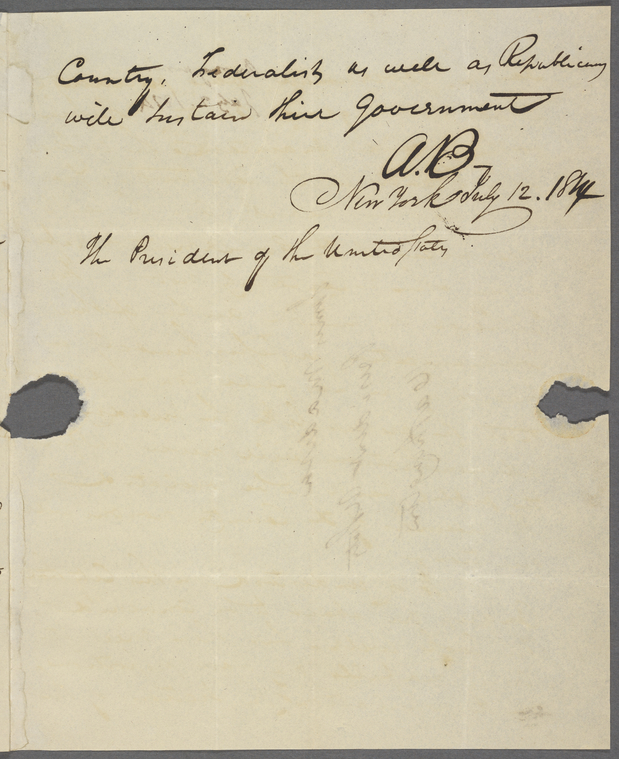 Country, Federalists as well as Republicans
will sustain their Government
A.B.
New York July 12. 1814
The President of the United States